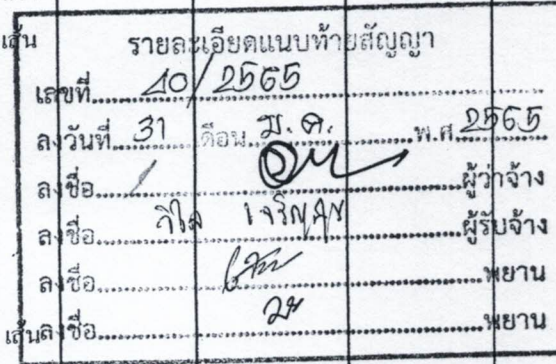 เส้น รายละเอียดแนบท้ายสัญญา
เลขที่ 40/2565
ลงวันที่ 31 เดือน ม.ค. พ.ศ. 2565
ลงชื่อ ผู้ว่าจ้าง
ลงชื่อ วิไล เจริญสุข ผู้รับจ้าง
ลงชื่อ พยาน
เส้น ลงชื่อ พยาน